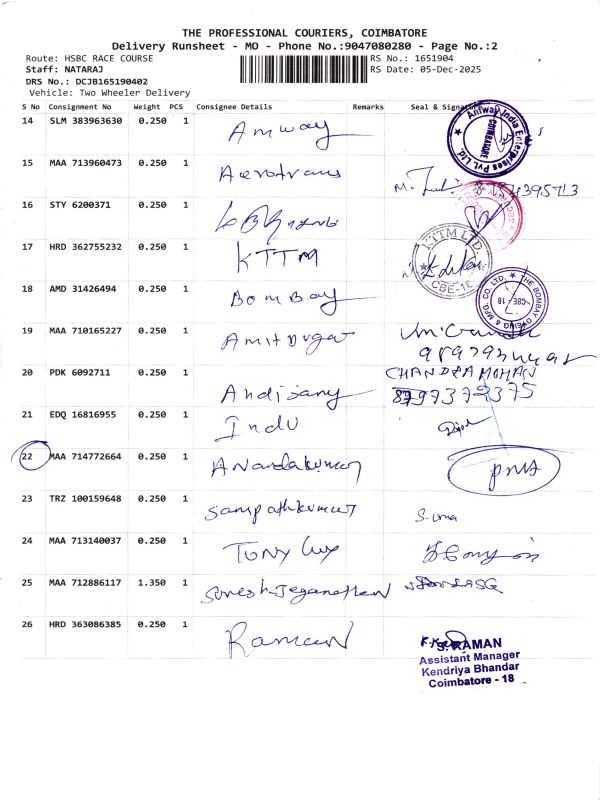 THE PROFESSIONAL COURIERS, COIMBATORE
Delivery Runsheet - MO - Phone No.:9047080280 - Page No.:2
Route: HSBC RACE COURSE RS No.: 1651904
Staff: NATARAJ RS Date: 05-Dec-2025
DRS No.: DCJB165190402
Vehicle: Two Wheeler Delivery
S No Consignment No Weight PCS Consignee Details Remarks Seal & Signature
14 SLM 383963630 0.250 1 Amway Amway India Enterprises Pvt. Ltd. COIMBATORE
15 MAA 713960473 0.250 1 Aerotrans M.
16 STY 6200371 0.250 1
17 HRD 362755232 0.250 1 KTTM KTTM LTD. CBE-18
18 AMD 31426494 0.250 1 Bombay THE BOMBAY DYEING & MFG. CO. LTD. CBE - 18
19 MAA 710165227 0.250 1 Amit Dugar
20 PDK 6092711 0.250 1 Andisamy CHANDRAMOHAN
97372375
21 EDQ 16816955 0.250 1 Indu
22 MAA 714772664 0.250 1 Anandakumar
23 TRZ 100159648 0.250 1 Sampathkumar S. Uma
24 MAA 713140037 0.250 1 Tony
25 MAA 712886117 1.350 1 Suresh Jeganathan
26 HRD 363086385 0.250 1 Raman
RAMAN
Assistant Manager
Kendriya Bhandar
Coimbatore - 18